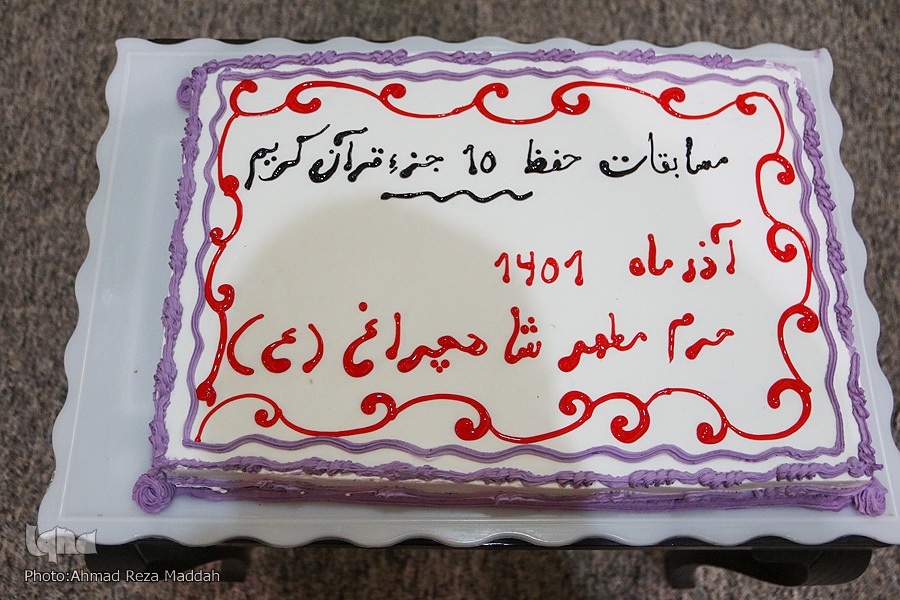 مسابقات حفظ 15 جزء قرآن کریم
آذر ماه 1401
حرم مطهر شاهچراغ (ع)
iqna
Photo:Ahmad Reza Maddah